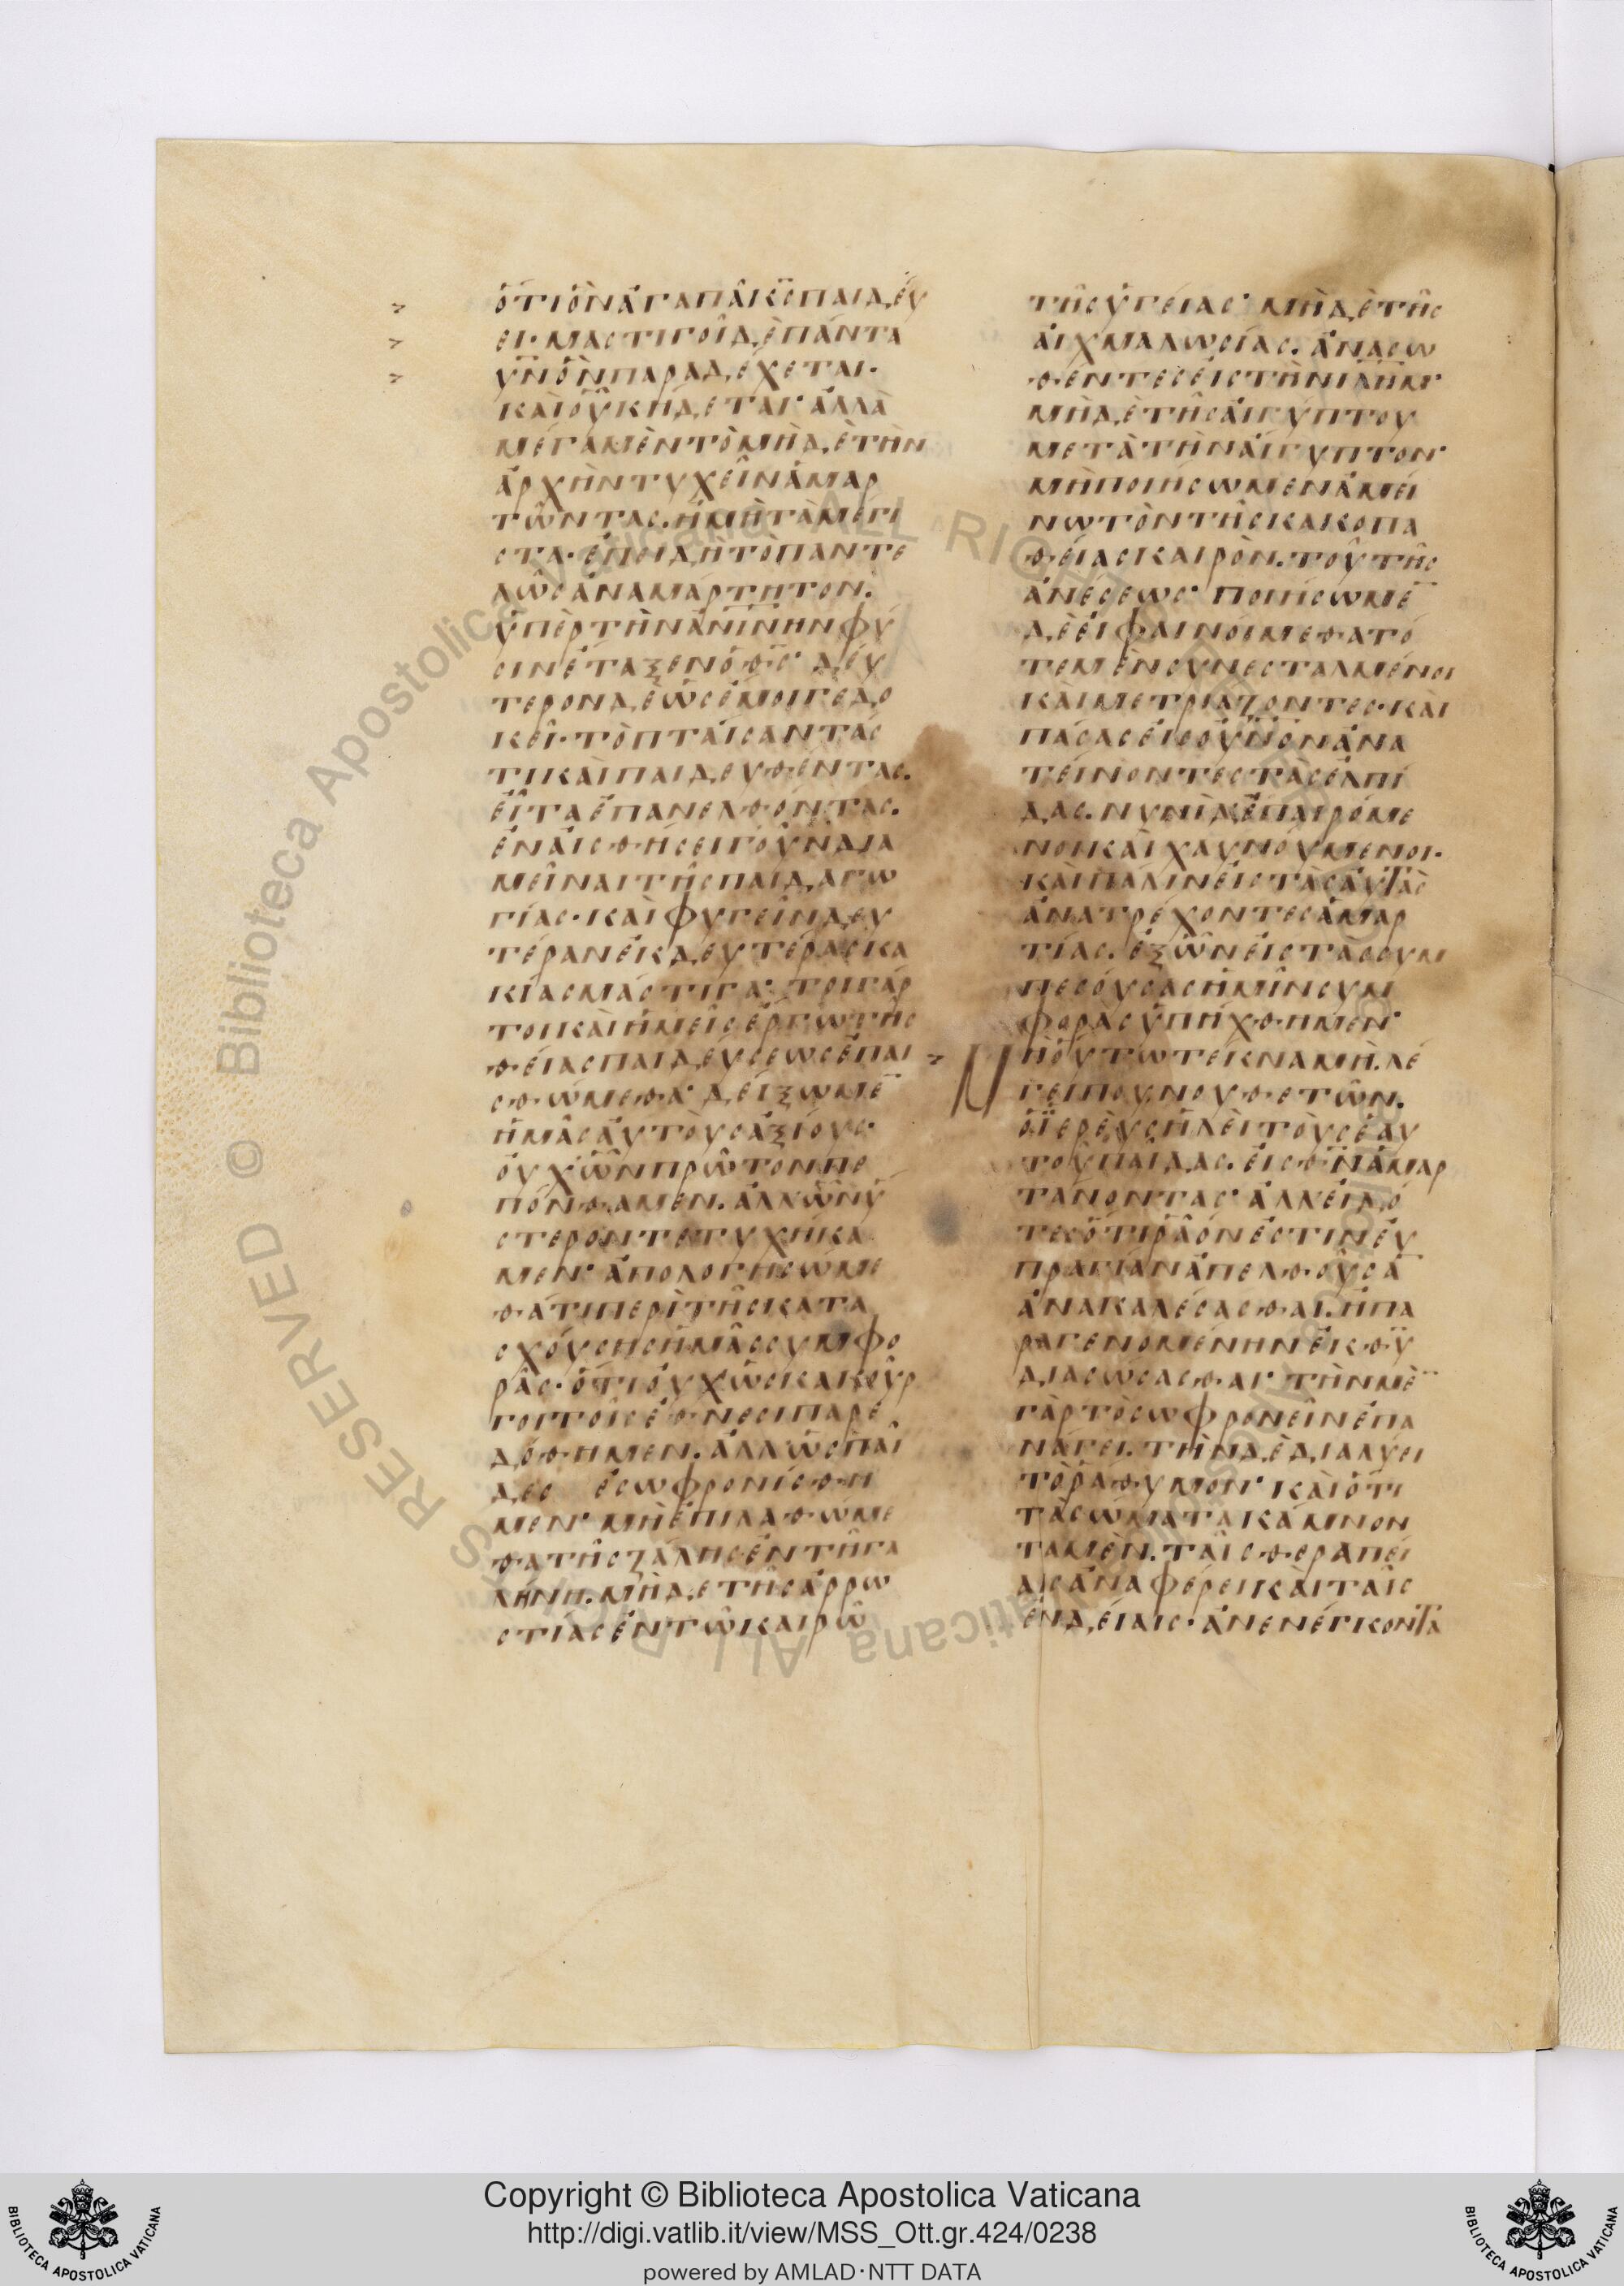 ὅτι ὃν ἀγαπᾶι κ̅ς̅ παιδεύ
ει· μαστιγοῖ δὲ πάντα
υ̅ν̅ ὃν παραδέχεται·
καὶ οὗ κήδεται· ἀλλὰ
μέγα μὲν τὸ μηδὲ τὴν
ἀρχὴν τυχεῖν ἁμαρ
τῶντας. ἢ μὴ τὰ μέγι
στα· ἐπειδὴ τὸ παντε
λῶς ἀναμάρτητον.
ὑπὲρ τὴν ἀ̅ν̅ί̅νην φύ
σιν ἔταξεν ὁ θ̅ς̅· δεύ
τερον δέ ὥς ἐμοι γε δο
κεῖ· τὸ πταίσαντάς
τι καὶ παιδευθέντας.
εἶτα ἐπανελθόντας.
ἐν αἰσθήσει γοῦν δια
μεῖναι τῆς παιδαγω
γίας· καὶ φυγεῖν δευ
τέραν ἐκ δευτέρας κα
κίας μάστιγα· τοιγάρ
τοι καὶ ἡμεῖς ἔργω τῆς
θείας παιδεύσεως ἐπαι
σθώμεθα· δείξωμε̅
ἡμᾶς ἀυτοὺς ἀξίους·
ὀυχ' ὧν πρῶτον πε
πόνθαμεν. ἀλλ' ὧν ὕ
στερον τετυχήκα
μεν· ἀπολογησώμε
θά τι περὶ τῆς κατα
σχούσης ἡμᾶς συμφο
ρᾶς· ὅτι ὀυχ' ὡς κακοῦρ
γοι τοῖς ἔθνεσι παρε
δόθημεν. ἀλλ' ὡς παῖ
δες ἐσωφρονίσθη
μεν· μὴ ἐπιλαθώμε
θα τῆς ζάλης ἐν τῆ γα
λήνη. μηδὲ τῆς ἀρρω
στίας ἐν τῶ καιρῶ
τῆς ὑγείας· μηδὲ τῆς
ἀιχμαλωσίας. ἀνασω
θέντες ἐις τὴν ι̅λ̅η̅μ̅·
μηδὲ τῆς ἀιγύπτου
μετὰ τὴν ἀίγυπτον·
μὴ ποιήσωμεν ἀμεί
νω τὸν τῆς κακοπα
θείας καιρὸν. τοῦ τῆς
ἀνέσεως· ποιήσωμε̅
δὲ ἐι φαινοίμεθα τό
τε μὲν συνεσταλμένοι
καὶ μετριάζοντες· καὶ
πάσας ἐις ο̅υ̅ν̅ο̅ν̅ ἀνα
τείνοντες τὰς ἐλπί
δας. νυνὶ δ' ἐπαιρόμε
νοι καὶ χαυνούμενοι·
καὶ πάλιν εἰς τὰς ἀυτὰς
ἀνατρέχοντες ἁμαρ
τίας. ἐξ ὧν ἐις τὰς συμ
πεσούσας ἡμῖν συμ
φορὰς ὑπήχθημεν·
Μὴ ὅυτω τέκνα μὴ. λέ
γει που νουθετῶν.
ὁ ἱερεὺς ἡλεὶ τοὺς ἑαυ
τοῦ παῖδας. εἰς θ̅ν̅ ἁμαρ
τάνοντας· ἀλλ' ἐιδό
τες ὅτι ρᾶόν ἐστιν ἐυ
πραγίαν ἀπελθοῦσα̅
ἀνακαλέσασθαι. ἢ πα
ραγενομένην ἐκ θ̅υ̅
διασώσασθαι· τὴν μὲ̅
γὰρ τὸ σωφρονεῖν ἐπα
νάγει. τὴν δὲ διαλύει
τὸ ράθυμον· καὶ ὅτι
τὰ σώματα κάμνον
τα μὲν. ταῖς θεραπεί
αις ἀναφέρει καὶ ταῖς
ἐνδείαις· ἀνενέγκοντα